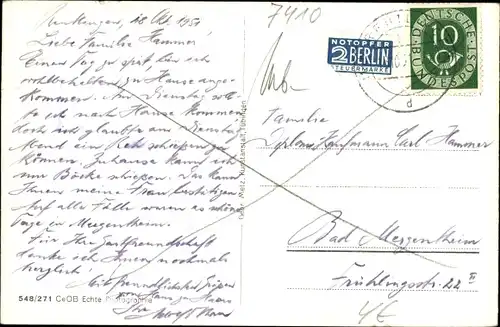 7410
Reutlingen, 18 Okt. 1951
Liebe Familie Hammer!
Einen Tag zu spät bin ich
wohlbehalten zu Hause ange-
kommen. Am Dienstag sollte
ich nach Hause kommen,
doch ich glaubte am Dienstag
Abend ein Reh schießen zu
können. Zuhause kann ich
nur Böcke schießen. Das kann
Ihnen meine Frau bestätigen.
Auf alle Fälle waren es schöne
Tage in Mergentheim.
Für Ihre Gastfreundschaft
danke ich Ihnen nochmals
herzlich!
Mit freundlichen Grüßen
von Haus zu Haus
Ihr
548/271 CeOB Echte Photographie
Metz, Kunstanstalt, Tübingen
NOTOPFER
2 BERLIN
STEUERMARKE
10
DEUTSCHE BUNDESPOST
d
Familie
Diplom Kaufmann Carl Hammer
Bad Mergentheim
Frühlingsstr. 22 II
4€